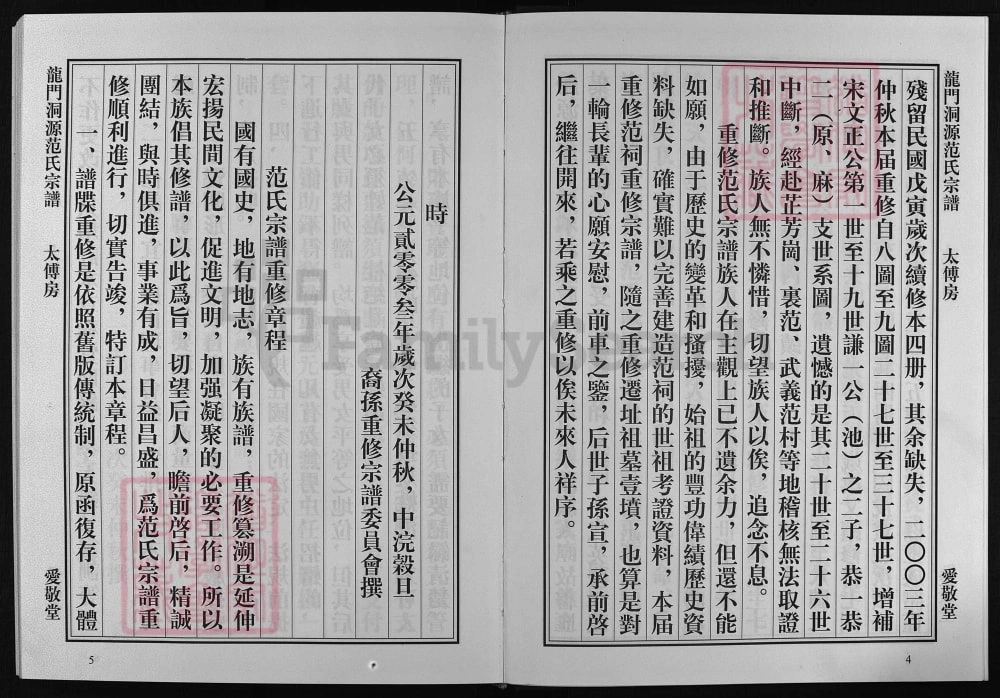 龍門洞源范氏宗譜　太傅房　愛敬堂
殘留民國戊寅歲次續修本四册，其余缺失，二〇〇三年
仲秋本届重修自八圖至九圖二十七世至三十七世，增補
宋文正公第一世至十九世謙一公（池）之二子，恭一恭
二（原、麻）支世系圖，遺憾的是其二十世至二十六世
中斷，經赴芷芳崗、裏范、武義范村等地稽核無法取證
和推斷。族人無不憐惜，切望族人以俟，追念不息。
重修范氏宗譜族人在主觀上已不遺余力，但還不能
如願，由于歷史的變革和搔擾，始祖的豐功偉績歷史資
料缺失，確實難以完善建造范祠的世祖考證資料，本届
重修范祠重修宗譜，隨之重修遷址祖墓壹墳，也算是對
輪長輩的心願安慰，前車之鑒，后世子孫宣，承前啓
后，繼往開來，若乘之重修以俟未來人祥序。
4
時
公元貳零零叁年歲次癸未仲秋，中浣榖旦
裔孫重修宗譜委員會撰
范氏宗譜重修章程
國有國史，地有地志，族有族譜，重修纂溯是延伸
宏揚民間文化，促進文明，加强凝聚的必要工作。所以
本族倡其修譜，以此爲旨，切望后人，瞻前啓后，精誠
團結，與時俱進，事業有成，日益昌盛，爲范氏宗譜重
修順利進行，切實告竣，特訂本章程。
一、譜牒重修是依照舊版傳統制，原函復存，大體
龍門洞源范氏宗譜　太傅房　愛敬堂
5
FamilySearch